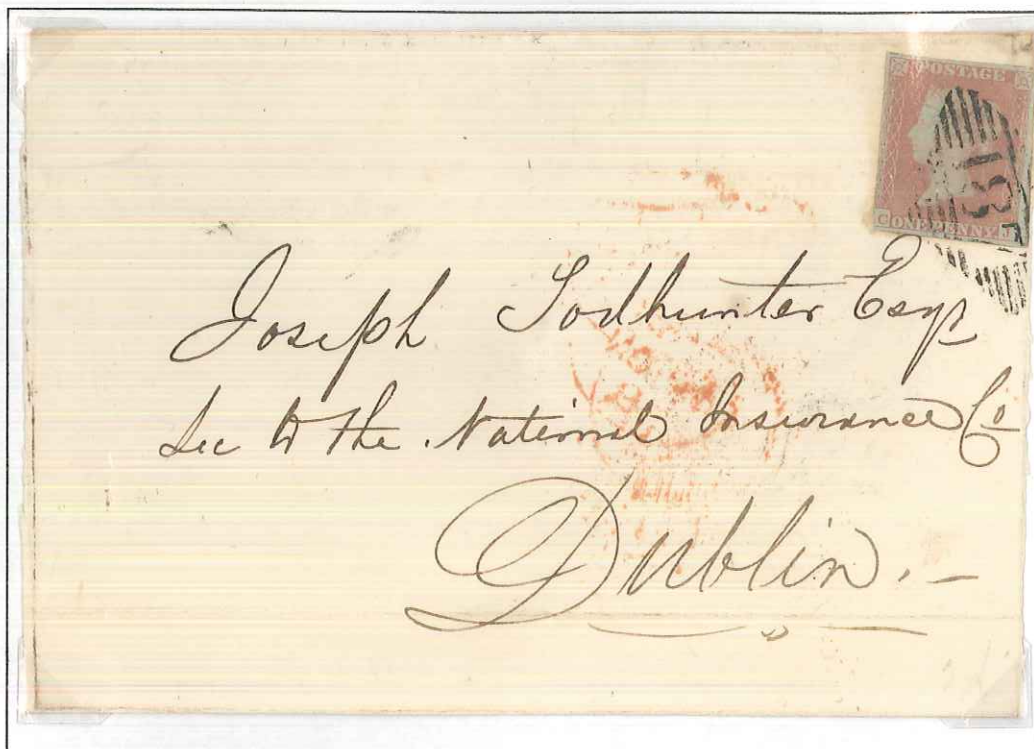 POSTAGE
C ONE PENNY J
Joseph Todhunter Esqr
Sec to the National Insurance Co
Dublin. —